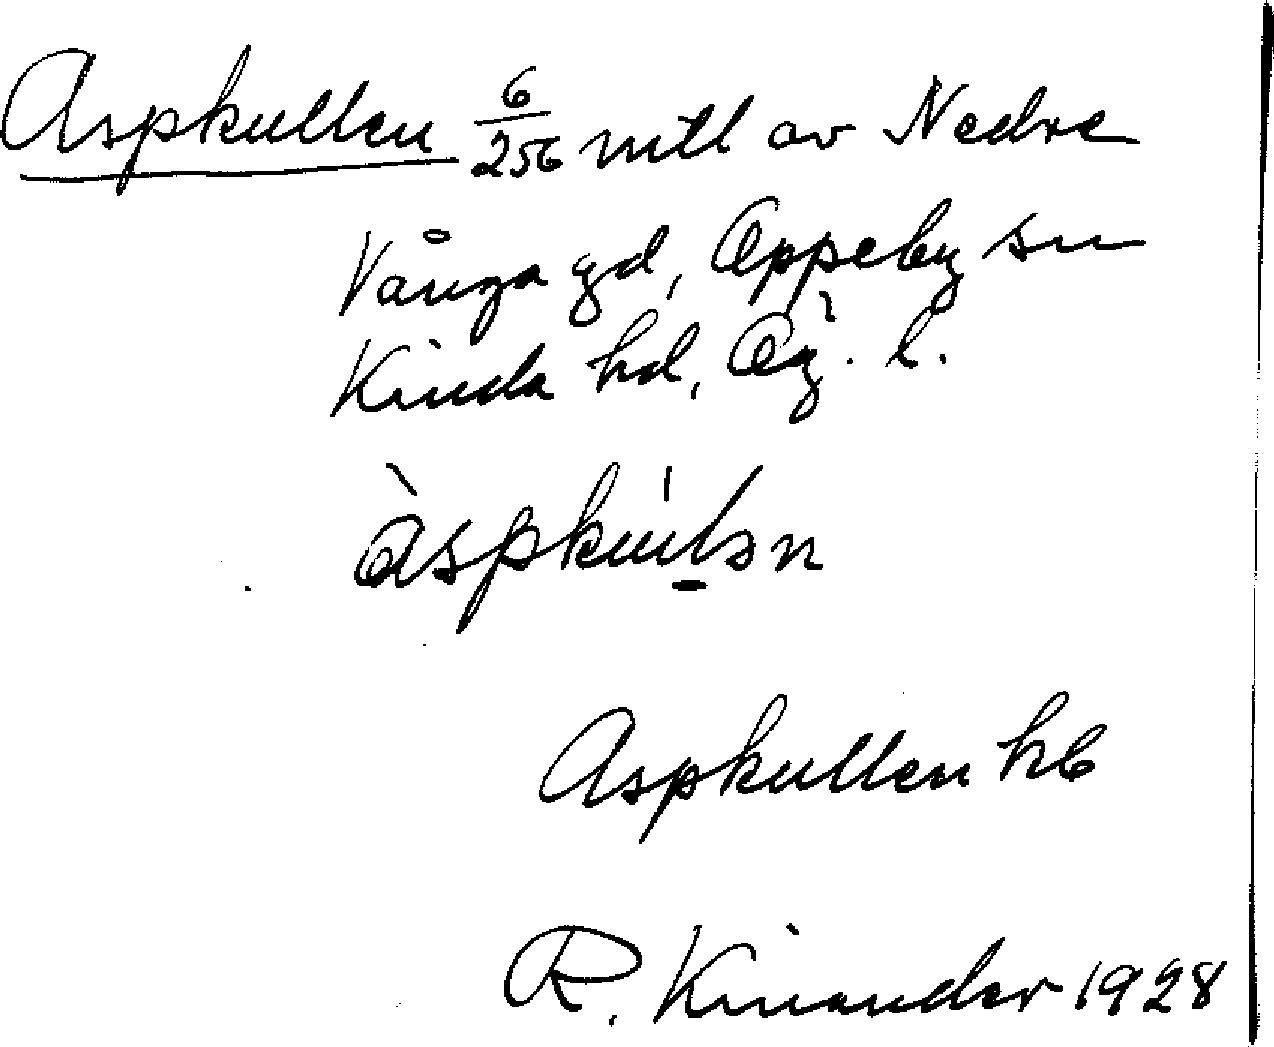 Aspkullen 6/256 mtl av Nedre
Vånga gd, Oppeby sn
Kinda hd, Ög. l.
Aspkullen hb
R. Kinander 1928